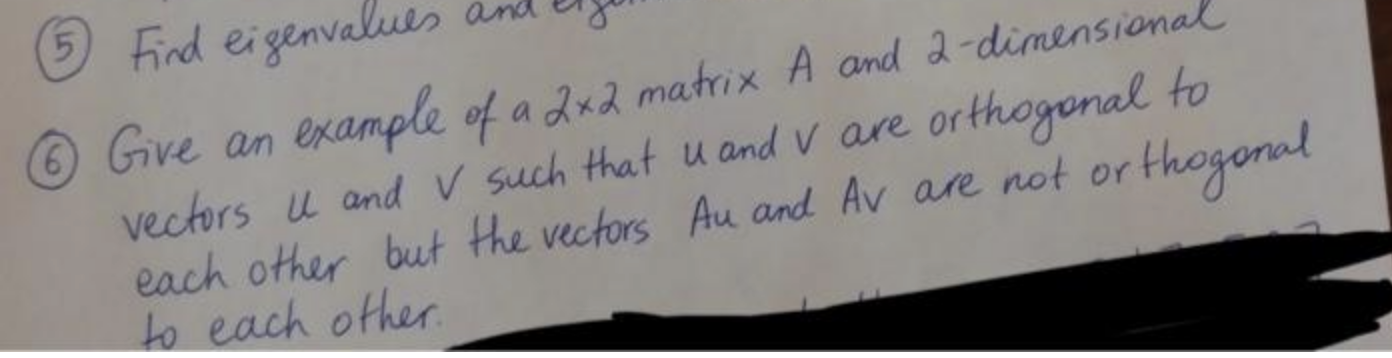 ⑤ Find eigenvalues and
⑥ Give an example of a 2×2 matrix A and 2-dimensional
vectors u and v such that u and v are orthogonal to
each other but the vectors Au and Av are not orthogonal
to each other.